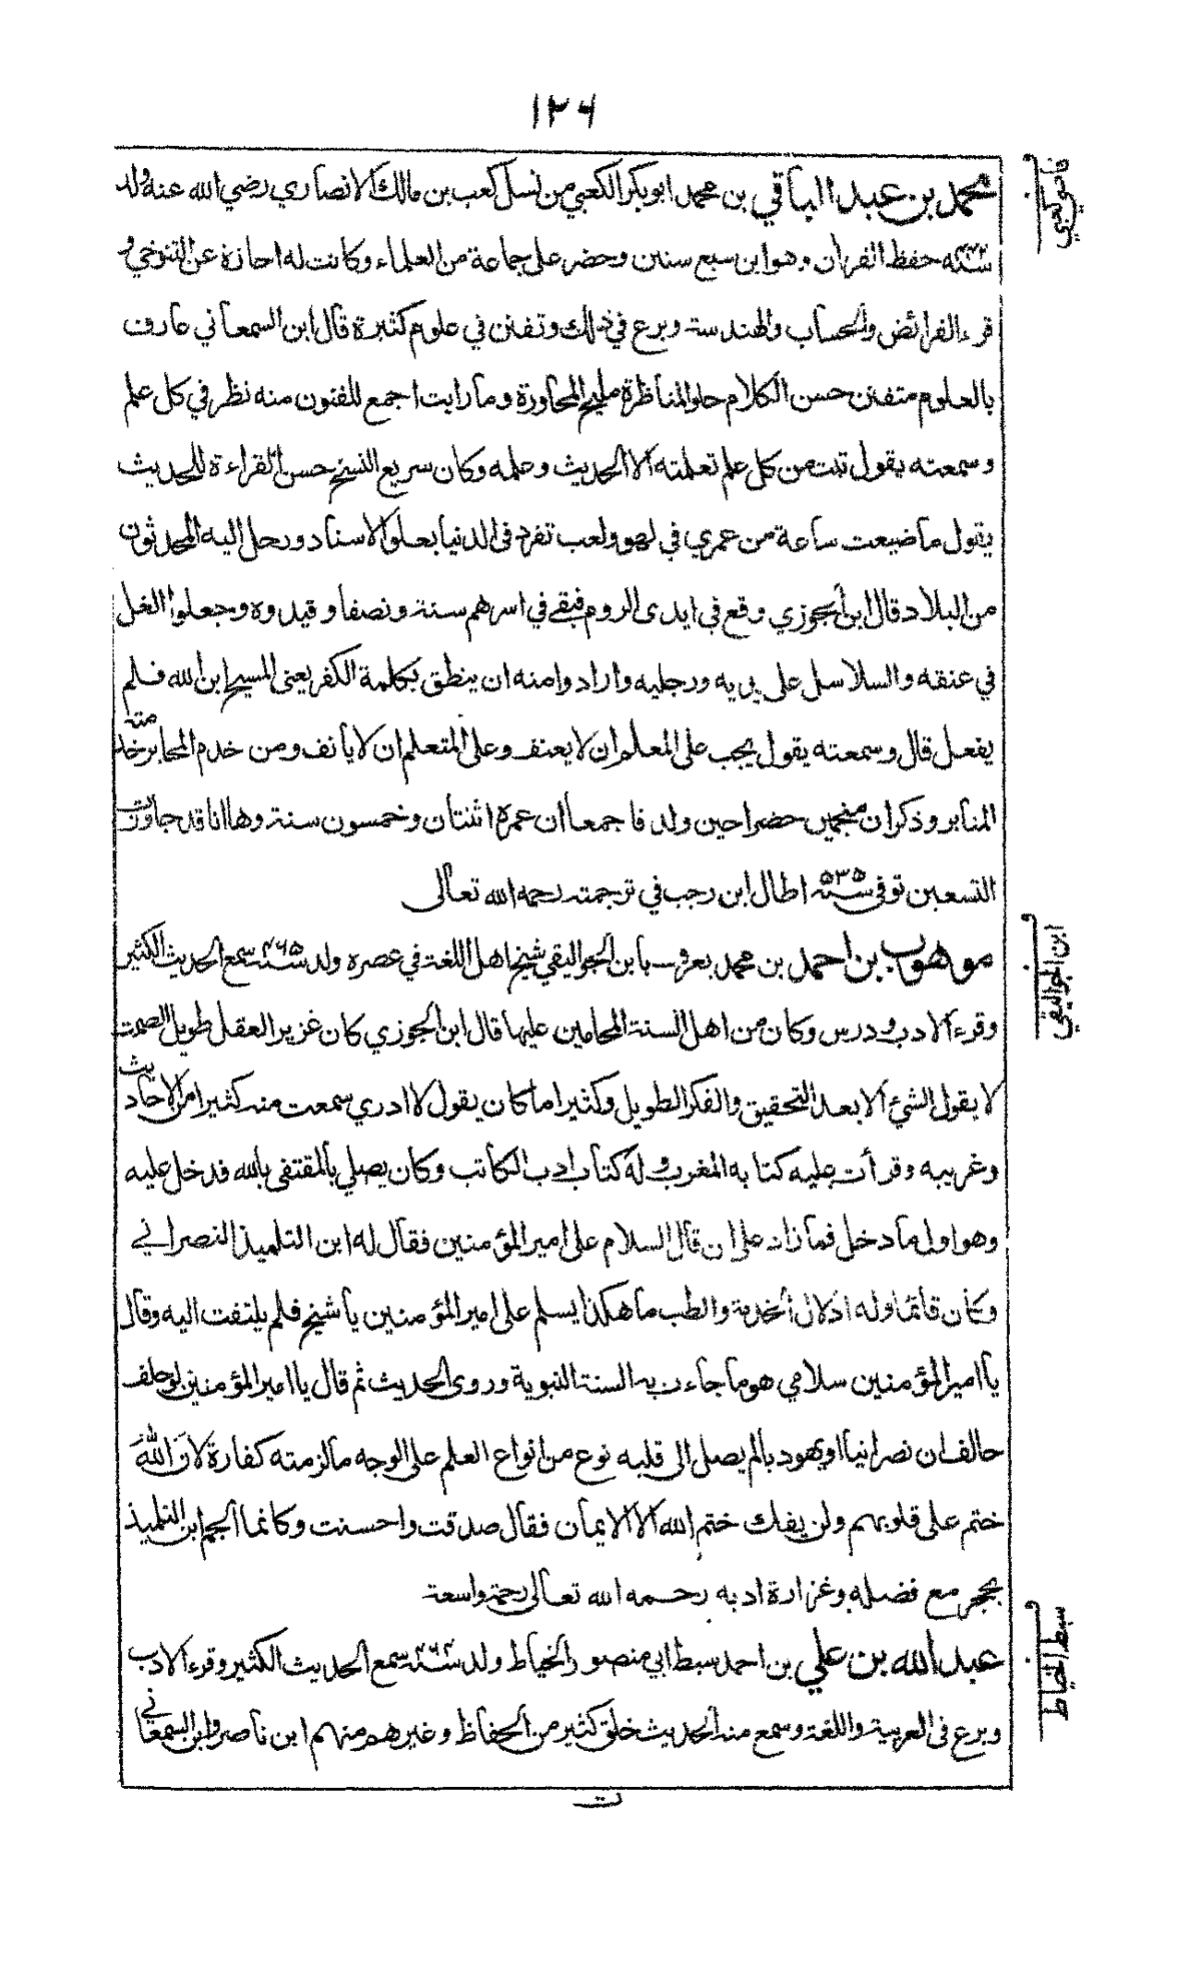 ١٢٦
محمد بن عبد الباقي بن محمد ابو بكر الكعبي من نسل كعب بن مالك الانصاري رضي الله عنه ولد
قاضي كعبي
سنة ٤٤٢ حفظ القرآن وهو ابن سبع سنين وحضر على جماعة من العلماء وكانت له اجازة عن التنوخي و
قرء الفرائض والحساب والهندسة وبرع في ذلك وتفنن في علوم كثيرة قال ابن السمعاني عارف
بالعلوم متفنن حسن الكلام حلو المناظرة مليح المحاورة وما رايت اجمع للفنون منه نظر في كل علم
وسمعته يقول تبت من كل علم تعلمته الا الحديث وعلمه وكان سريع النسخ حسن القراءة للحديث
يقول ما ضيعت ساعة من عمري في لهو ولعب تفرد في الدنيا بعلو الاسناد ورحل اليه المحدثون
من البلاد قال ابن الجوزي وقع في ايدى الروم فبقي في اسرهم سنة ونصفا وقيدوه وجعلوا الغل
في عنقه والسلاسل على يديه ورجليه وارادوا منه ان ينطق بكلمة الكفر يعنى المسيح ابن الله فلم
يفعل قال وسمعته يقول يجب على المعلم ان لا يعنف وعلى المتعلم ان لا يأنف ومن خدم المحابر خدمته
المنابر وذكر ان منجمين حضرا حين ولد فاجمعا ان عمره اثنتان وخمسون سنة وها انا قد جاوزت
التسعين توفى سنة ٥٣٥ اطال ابن رجب في ترجمته رحمه الله تعالى
موهوب بن احمد بن محمد يعرف بابن الجواليقي شيخ اهل اللغة في عصره ولد سنة ٤٦٥ سمع الحديث الكثير
ابن الجواليقي
وقرء الادب ودرس وكان من اهل السنة المحامين عليها قال ابن الجوزي كان غزير العقل طويل الصمت
لا يقول الشئ الا بعد التحقيق والفكر الطويل وكثيرا ما كان يقول لا ادري سمعت منه كثيرا من الاحاديث
وغريبه وقرأت عليه كتابه المغرب وله كتاب ادب الكاتب وكان يصلي بالمقتفى بالله فدخل عليه
وهو اول ما دخل فما زاد على ان قال السلام على امير المؤمنين فقال له ابن التلميذ النصراني
وكان قائما وله ادلال الخدمة والطب ما هكذا يسلم على امير المؤمنين يا شيخ فلم يلتفت اليه وقال
يا امير المؤمنين سلامي هو ما جاءت به السنة النبوية وروى الحديث ثم قال يا امير المؤمنين لو حلف
حالف ان نصرانيا او يهوديا لم يصل الى قلبه نوع من انواع العلم على الوجه ما لزمته كفارة لان الله
ختم على قلوبهم ولن يفك ختم الله الا الايمان فقال صدقت واحسنت وكانما الجم ابن التلميذ
بحجر مع فضله وغزارة ادبه رحمه الله تعالى رحمة واسعة
عبد الله بن علي بن احمد سبط ابي منصور الخياط ولد سنة ٤٦٤ سمع الحديث الكثير وقرء الادب
سبط الخياط
وبرع في العربية واللغة وسمع منه الحديث خلق كثير من الحفاظ وغيرهم منهم ابن ناصر وابن السمعاني